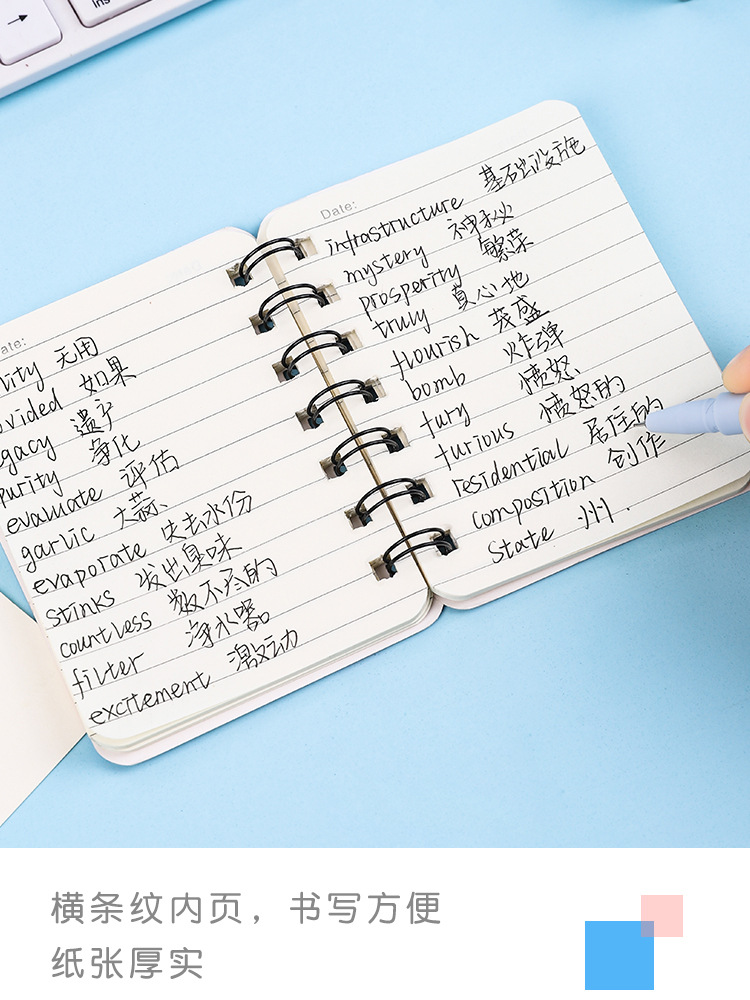 Date:
infrastructure 基础设施
mystery 神秘
prosperity 繁荣
truly 真心地
flourish 茂盛
bomb 炸弹
fury 愤怒
furious 愤怒的
residential 居住的
composition 创作
State 州.
ate:
lity 无用
ovided 如果
egacy 遗产
purity 净化
evaluate 评估
garlic 大蒜
evaporate 失去水份
stinks 发出臭味
countless 数不尽的
filter 净水器
excitement 激动
横条纹内页，书写方便
纸张厚实